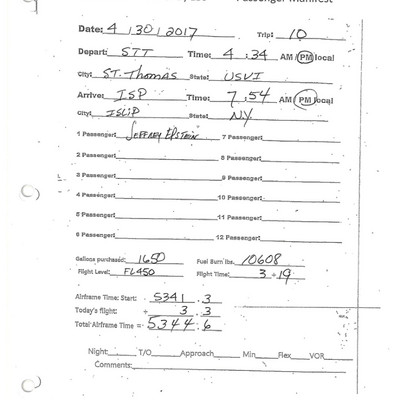 Passenger Manifest
Date: 4/30/2017 Trip: 10
Depart: STT Time: 4:34 AM/PM local
City: ST. THOMAS State: USVI
Arrive: ISP Time: 7:54 AM/PM local
City: ISLIP State: NY
1 Passenger: JEFFREY EPSTEIN 7 Passenger:
2 Passenger: 8 Passenger:
3 Passenger: 9 Passenger:
4 Passenger: 10 Passenger:
5 Passenger: 11 Passenger:
6 Passenger: 12 Passenger:
Gallons purchased: 1650 Fuel Burn lbs. 10608
Flight Level: FL450 Flight Time: 3 + 19
Airframe Time: Start: 5341.3
Today's flight: + 3.3
Total Airframe Time = 5344.6
Night: T/O Approach Min Flex VOR
Comments: